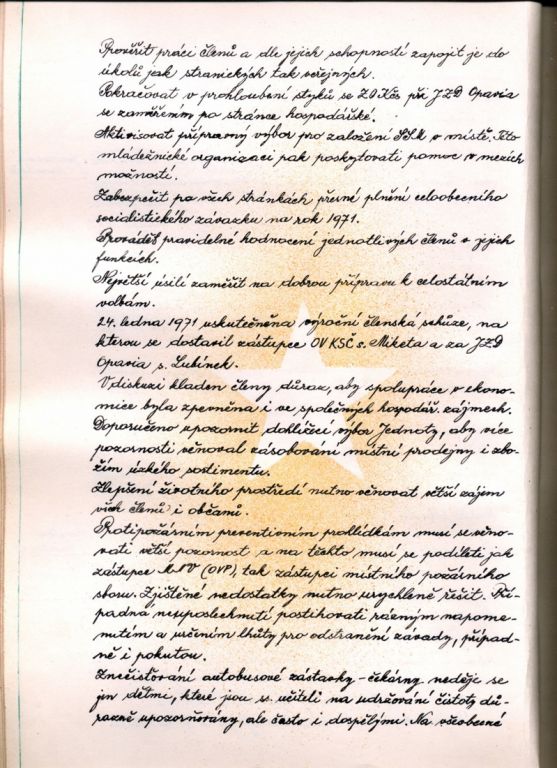 Prověřit práci členů a dle jejich schopností zapojit je do
úkolů jak stranických tak veřejných.
Pokračovat v prohloubení styků se ZO Kčs při JZD Opavia
se zaměřením po stránce hospodářské.
Aktivisovat přípravný výbor pro založení SSM v místě. Této
mládežnické organizaci pak poskytovati pomoc v mezích
možností.
Zabezpečit po všech stránkách přesné plnění celoobecního
socialistického závazku na rok 1971.
Provádět pravidelné hodnocení jednotlivých členů v jejich
funkcích.
Největší úsilí zaměřit na dobrou přípravu k celostátním
volbám.
24. ledna 1971 uskutečněna výroční členská schůze, na
kterou se dostavil zástupce OV KSČ s. Miketa a za JZD
Opavia s. Lubínek.
V diskuzi kladen členy důraz, aby spolupráce v ekono-
mice byla zpevněna i ve společných hospodář. zájmech.
Doporučeno upozornit dohlížecí výbor Jednoty, aby více
pozornosti věnoval zásobování místní prodejny i zbo-
žím úzkého sortimentu.
Zlepšení životního prostředí nutno věnovat větší zájem
všech členů i občanů.
Protipožárním preventivním prohlídkám musí se věno-
vati větší pozornost a na těchto musí se podíleti jak
zástupce MNV (OVP), tak zástupci místního požárního
sboru. Zjištěné nedostatky nutno urychleně řešit. Pří-
padná neuposlechnutí postihovati rázným napome-
nutím a určením lhůty pro odstranění závady, případ-
ně i pokutou.
Znečišťování autobusové zástavky - čekárny neděje se
jen dětmi, které jsou ss. učiteli na udržování čistoty dů-
razně upozorňovány, ale často i dospělými. Na všeobecné